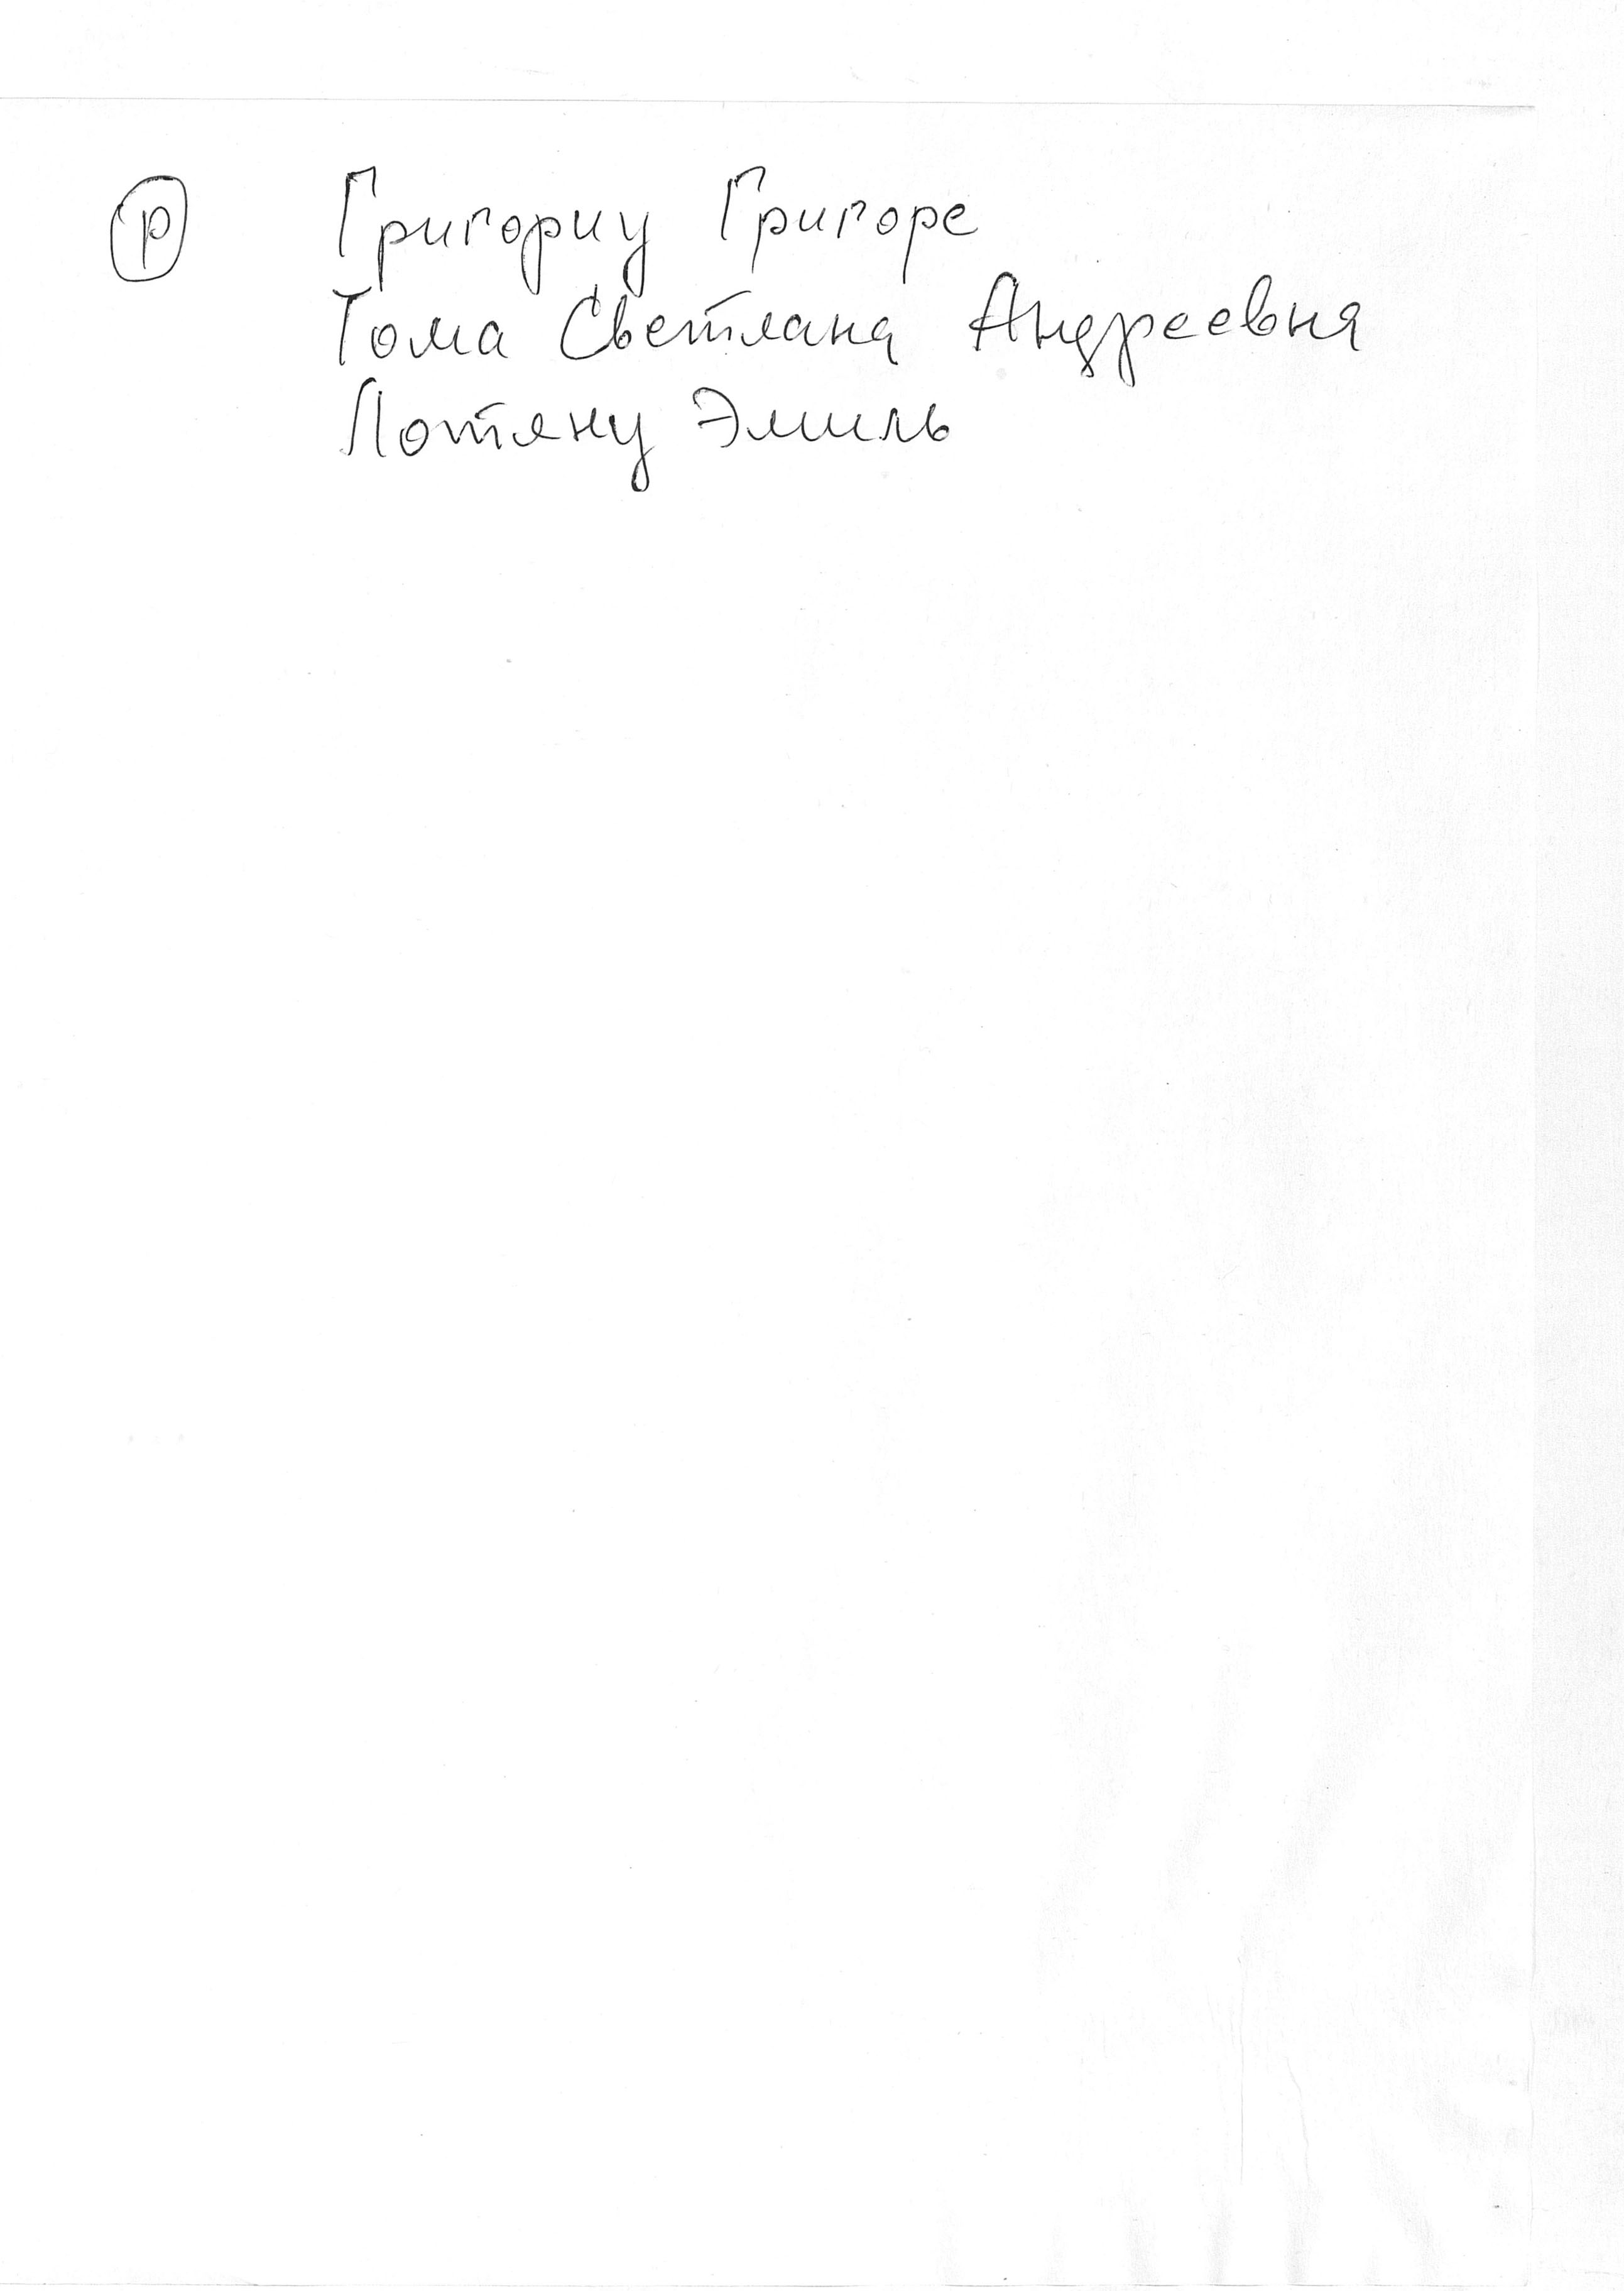 Р Григориу Григоре
Тома Светлана Андреевна
Лотяну Эмиль